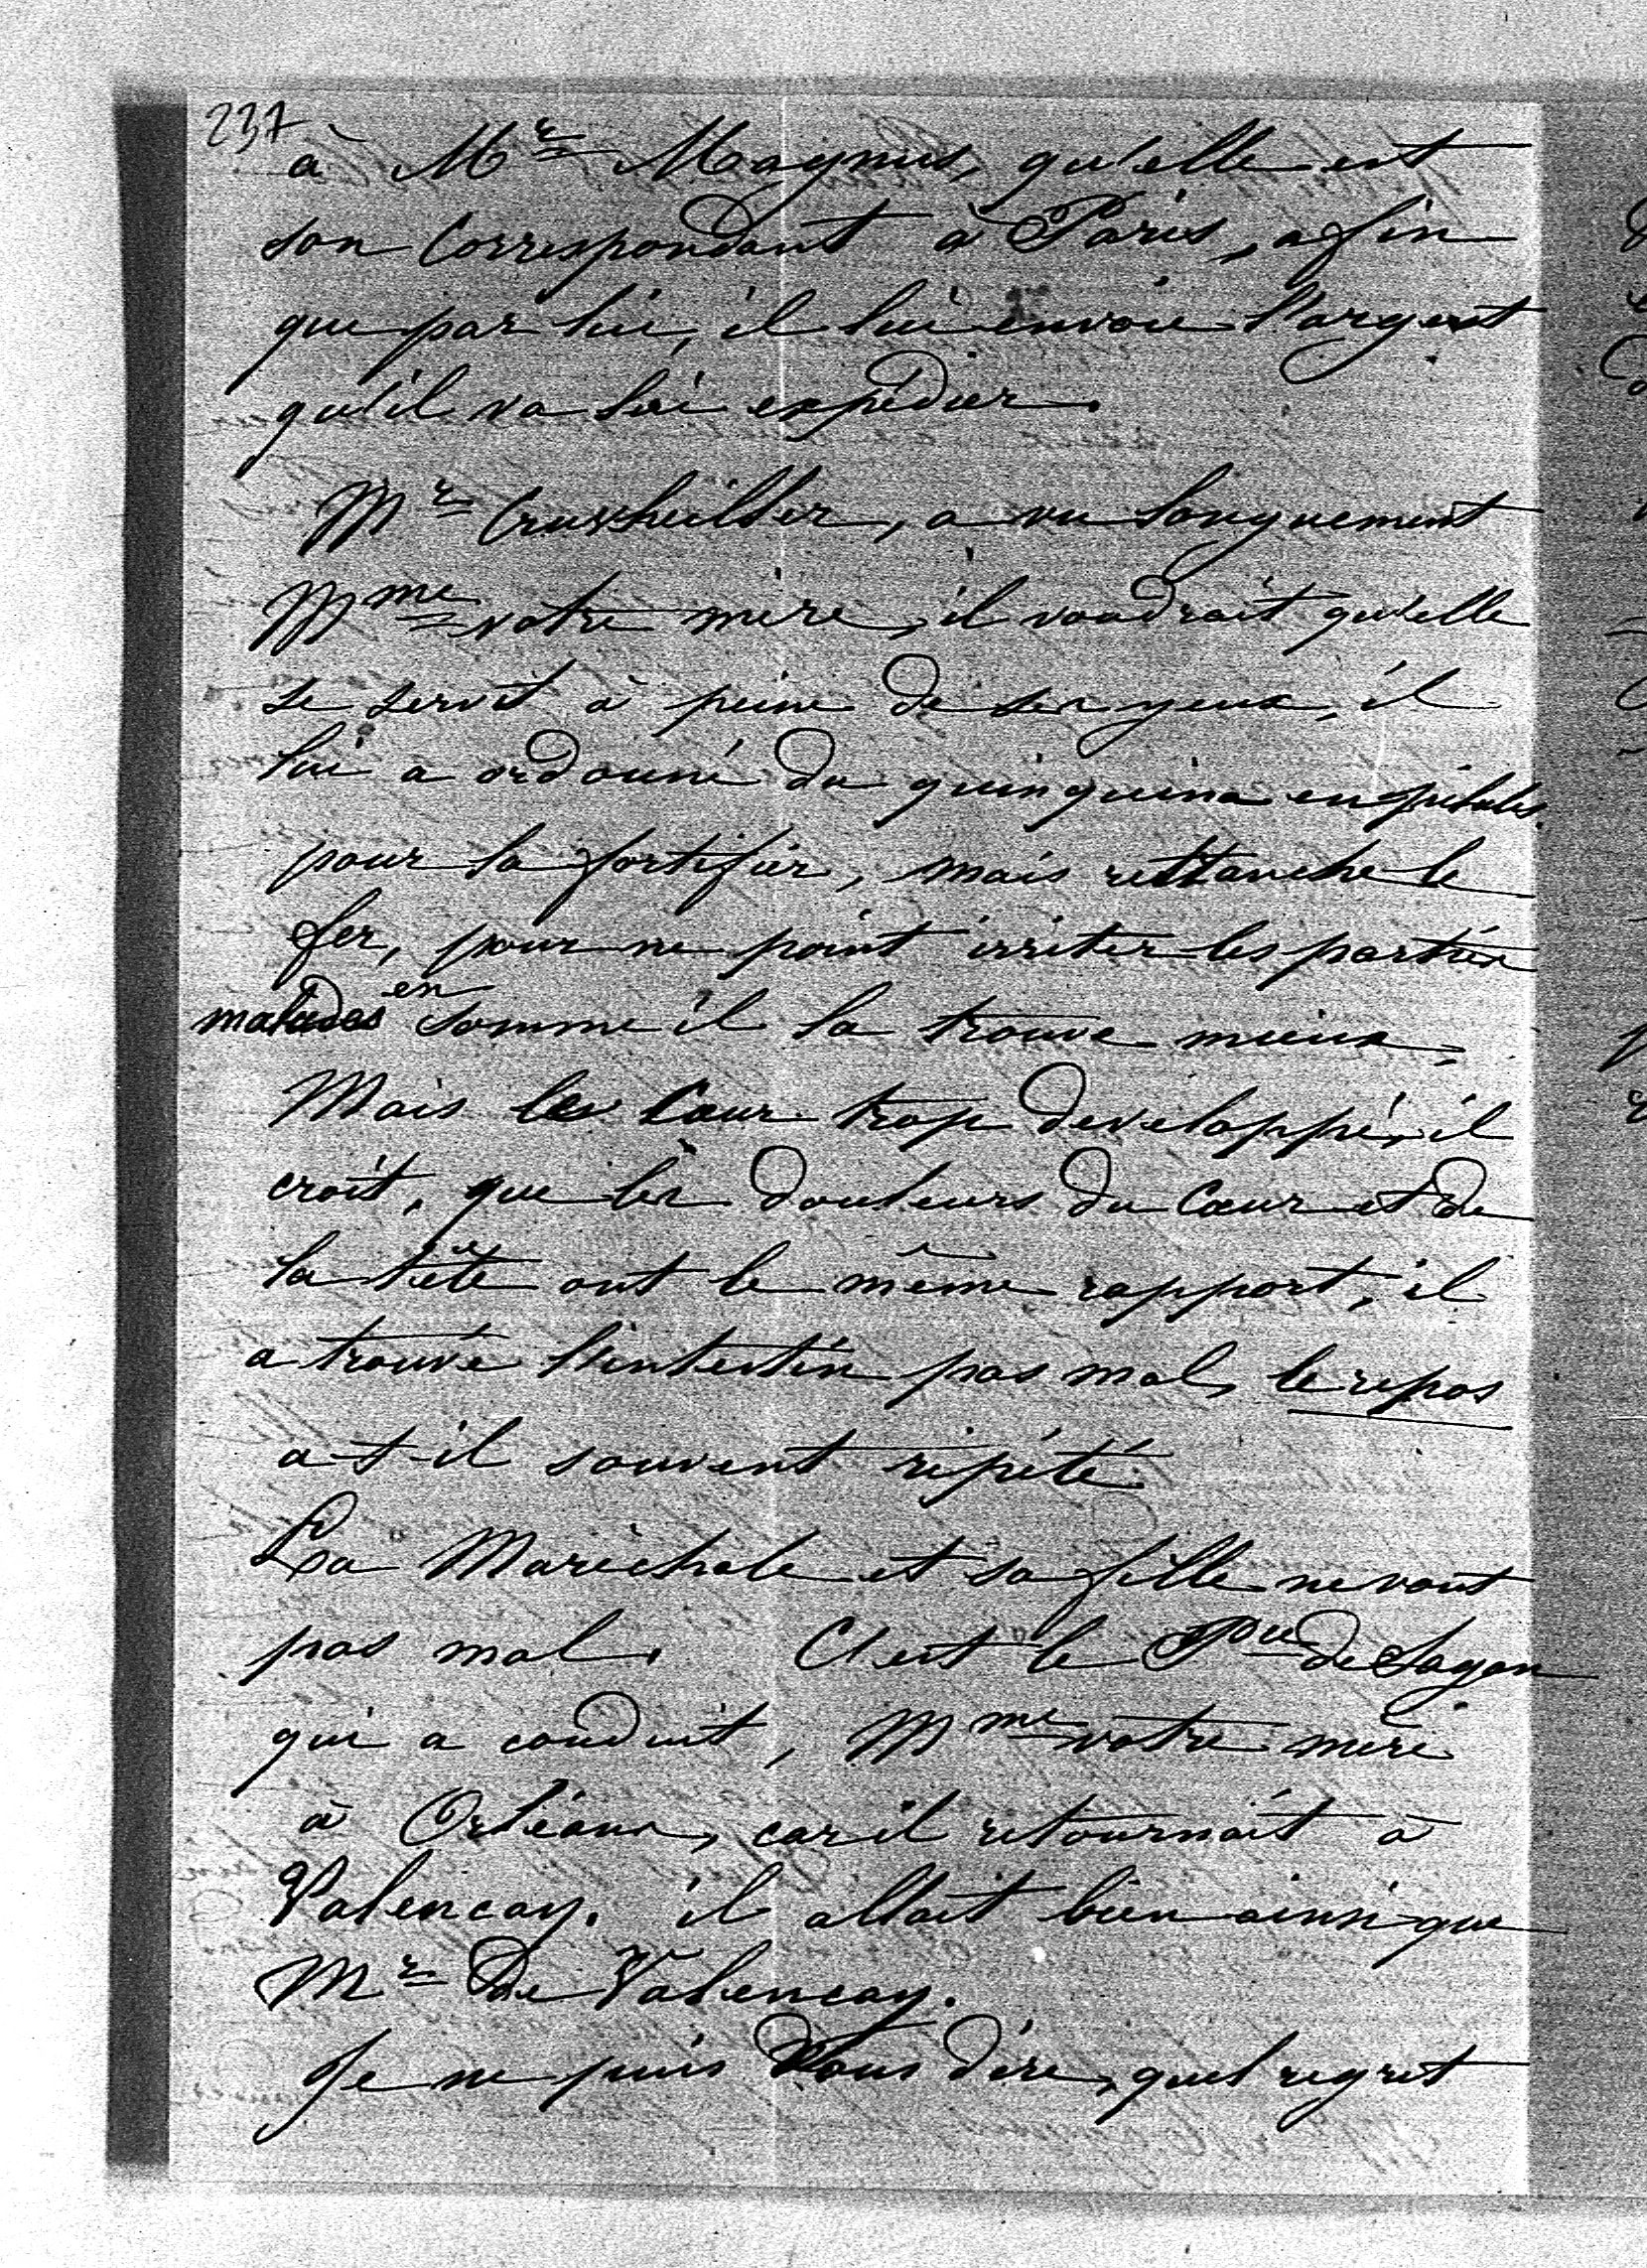 237
à Mr Magnus, qu'elle est
son Correspondant à Paris, afin
que par lui, il lui envoie l'argent
qu'il va lui expédier.
Mr Cruvheillier, a vu longuement
Mme votre mère, il voudrait qu'elle
se servit à peine de ses yeux, il
lui a ordonné du quinquina en pilules
pour la fortifier, mais rettanche le
fer, pour ne point irriter les parties
malades en somme il la trouve mieux,
Mais le Cœur trop developpé, il
croit, que les douleurs du Cœur et de
la tête ont le même rapport, il
a trouvé l'intestin pas mal, le repos
a-t-il souvent répété.
La Maréchale et sa fille ne vont
pas mal. C'est le Pce de Sagan
qui a conduit, Mme votre mère
à Orléans, car il retournait à
Valencay. il allait bien ainsi que
Mr De Valencay.
Je ne puis Vous dire, quel regret